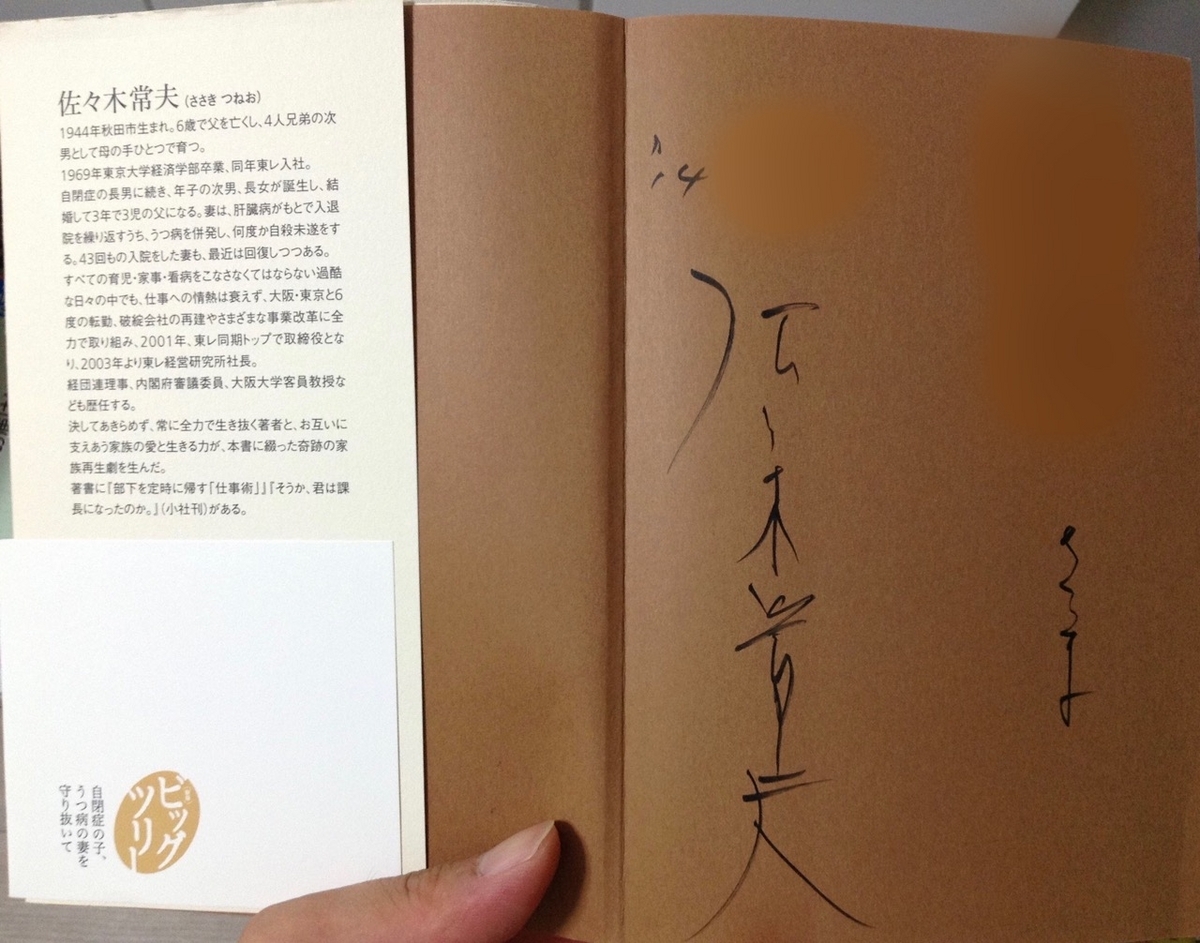 佐々木常夫(ささき つねお)
1944年秋田市生まれ。6歳で父を亡くし、4人兄弟の次
男として母の手ひとつで育つ。
1969年東京大学経済学部卒業、同年東レ入社。
自閉症の長男に続き、年子の次男、長女が誕生し、結
婚して3年で3児の父になる。妻は、肝臓病がもとで入退
院を繰り返すうち、うつ病を併発し、何度か自殺未遂をす
る。43回もの入院をした妻も、最近は回復しつつある。
すべての育児・家事・看病をこなさなくてはならない過酷
な日々の中でも、仕事への情熱は衰えず、大阪・東京と6
度の転勤、破綻会社の再建やさまざまな事業改革に全
力で取り組み、2001年、東レ同期トップで取締役とな
り、2003年より東レ経営研究所社長。
経団連理事、内閣府審議委員、大阪大学客員教授な
ども歴任する。
決してあきらめず、常に全力で生き抜く著者と、お互いに
支えあう家族の愛と生きる力が、本書に綴った奇跡の家
族再生劇を生んだ。
著書に『部下を定時に帰す「仕事術」』『そうか、君は課
長になったのか。』(小社刊)がある。
ビッグ
ツリー
自閉症の子、
うつ病の妻を
守り抜いて
佐々木常夫